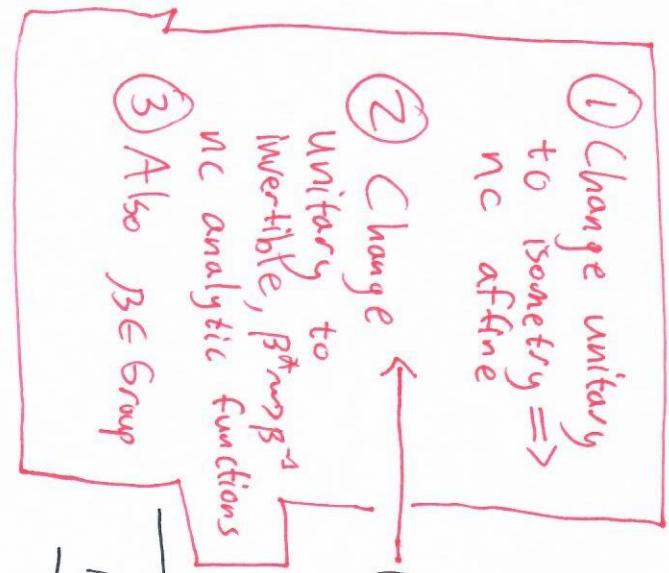 ① Change unitary
to isometry ⇒
nc affine
② Change
unitary to
invertible, β* ⇝ β⁻¹
nc analytic functions
③ Also β ∈ Group